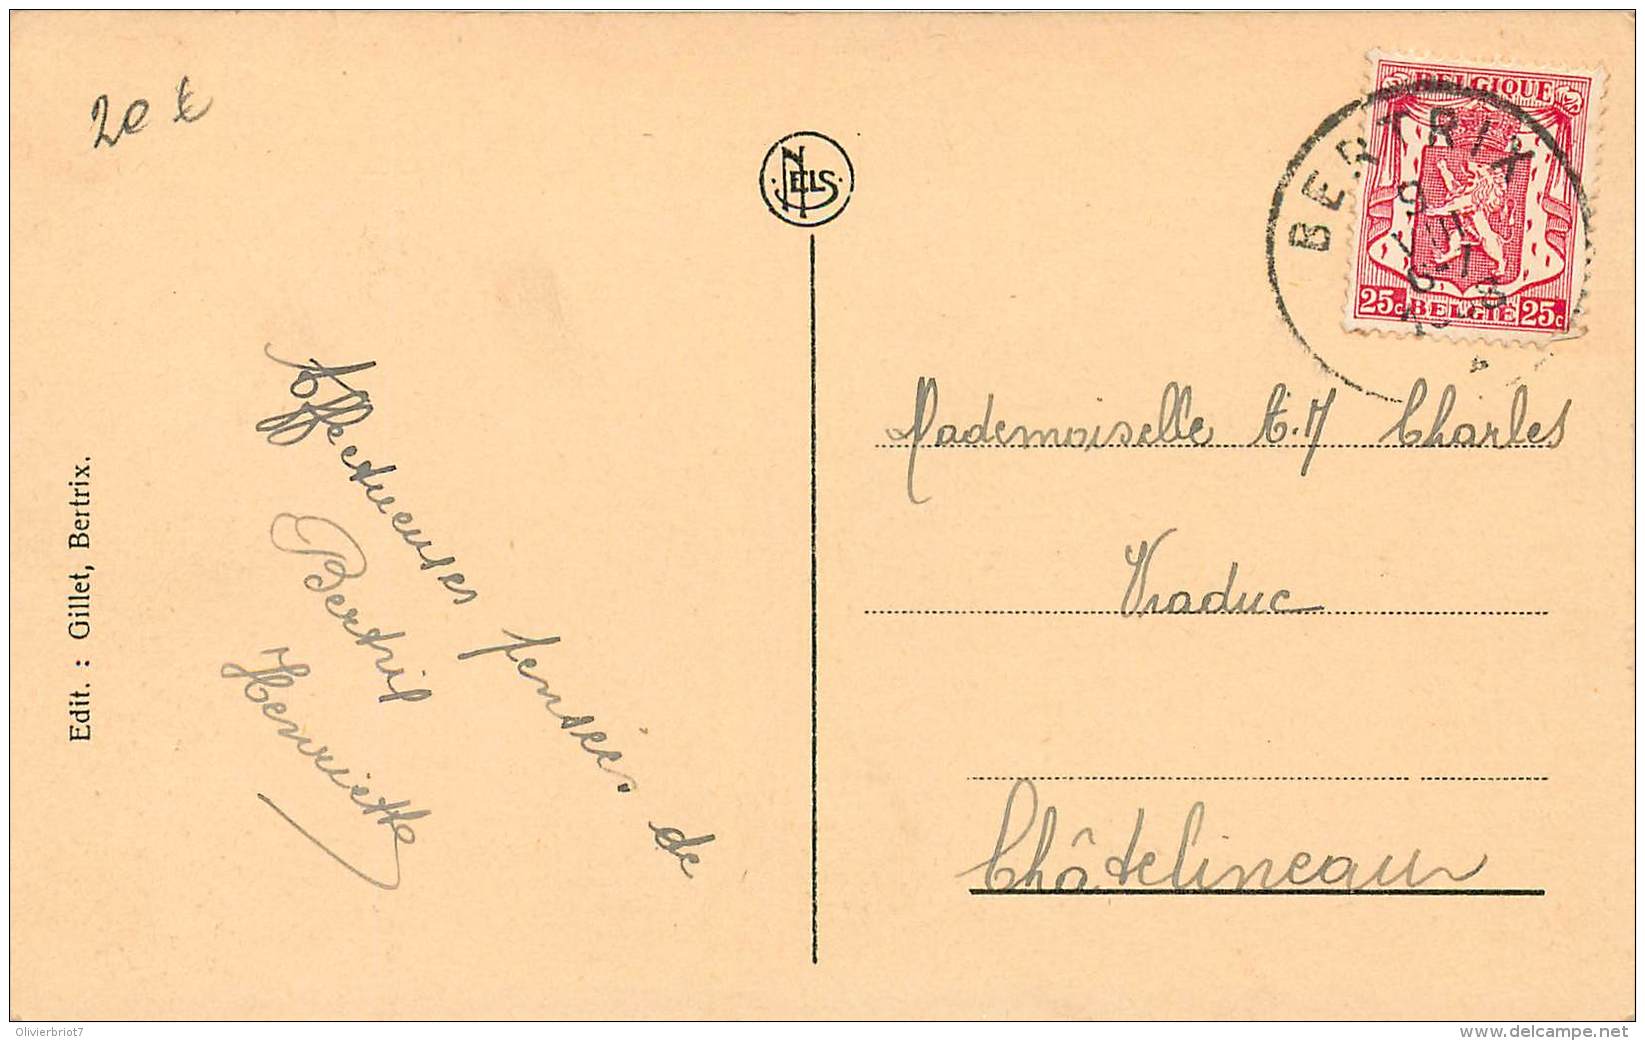 20 €
NELS
BELGIQUE
BERTRIX
9
6-7
25c BELGIE 25c
Edit. : Gillet, Bertrix.
Affectueuses pensées de
Bertrix
Henriette
Mademoiselle A.M Charles
Viaduc
Châtelineau
Olivierbriot7
www.delcampe.net